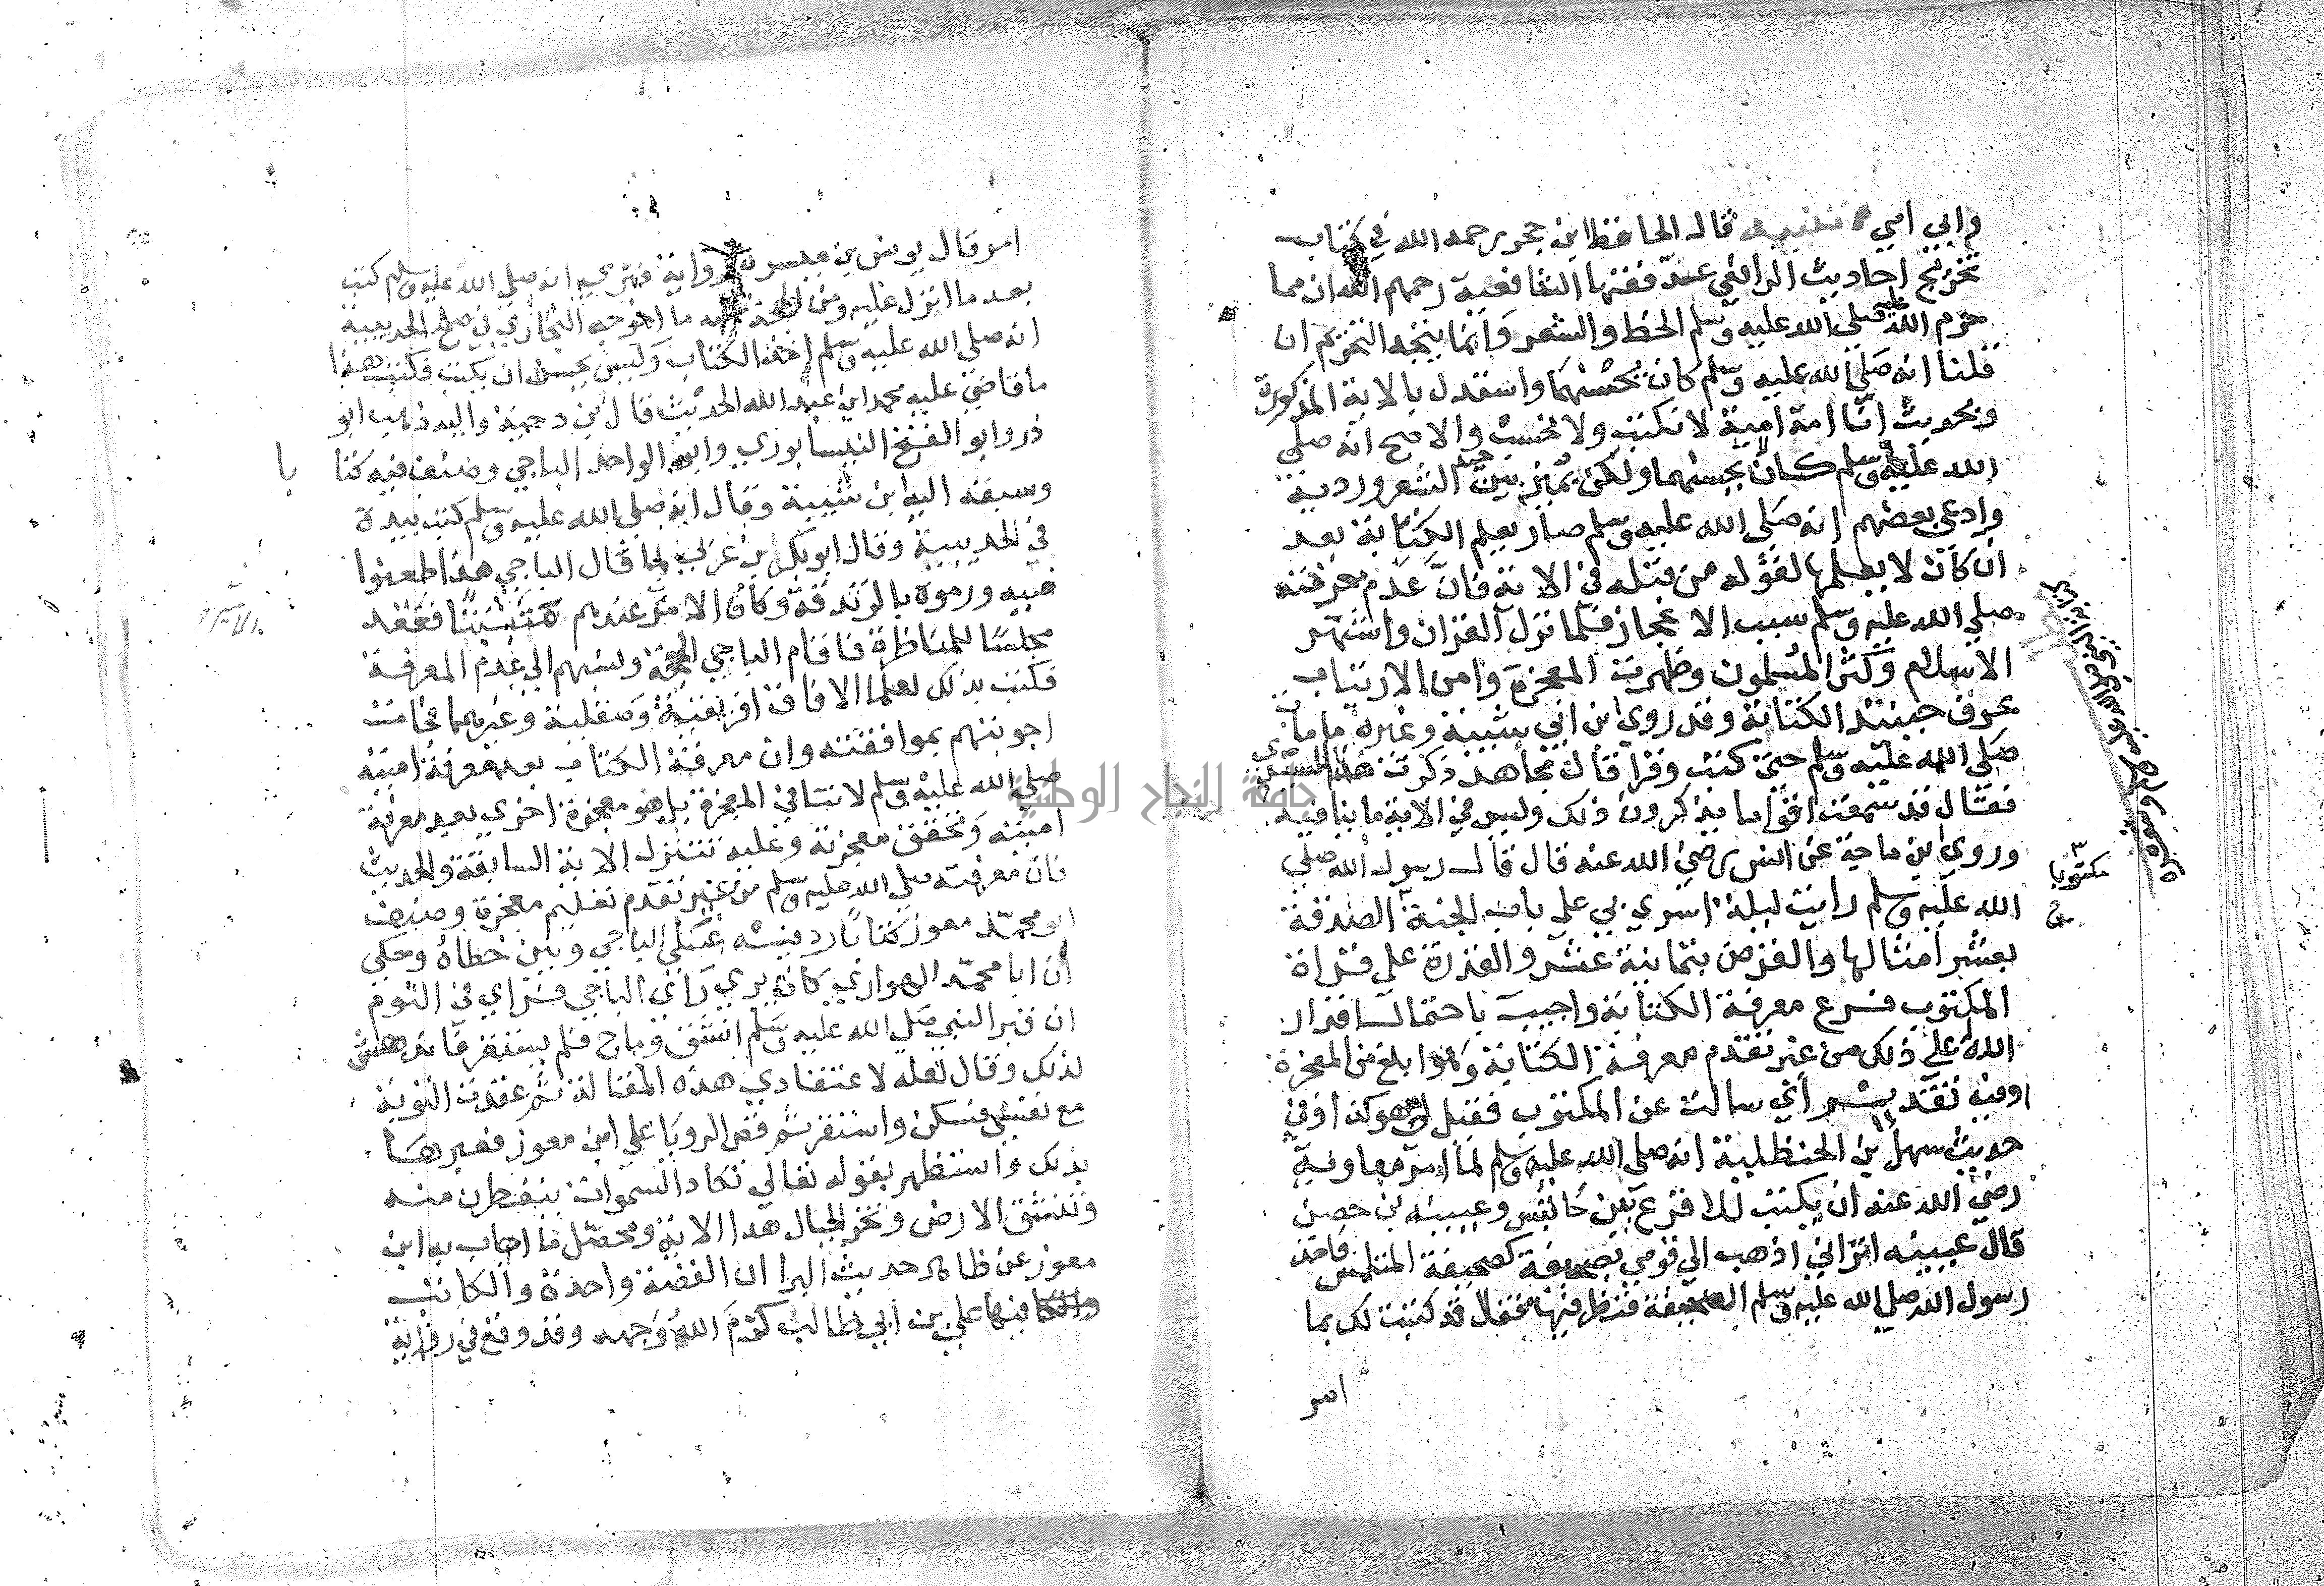 وابي امي تنبيه قال الحافظ ابن حجر رحمه الله في كتاب
تخريج احاديث الرافعي عد فقها الشافعية رحمهم الله ان مما
حرم الله عليه صلي الله عليه وسلم الخط والشعر وانما يتجه التحريم ان
قلنا انه صلي الله عليه وسلم كان يحسنهما واستدل بالاية المذكورة
وبحديث انا امة امية لا نكتب ولا نحسب والاصح انه صلي
الله عليه وسلم كان لا يحسنهما ولكن يميز بين جيد الشعر ورديه
وادعي بعضهم انه صلي الله عليه وسلم صار يعلم الكتابة بعد
ان كان لا يعلمها لقوله من قبله في الاية فان عدم معرفته
صلي الله عليه وسلم سبب الاعجاز فلما نزل القران واشتهر
الاسلام وكثر المسلمون وظهرت المعجزة وامن الارتياب
عرف حينئذ الكتابة وقد روي ابن ابي شيبة وغيره ما مات
صلي الله عليه وسلم حتي كتب وقرا قال مجاهد ذكرت هذا للشعبي
فقال قد سمعت اقواما يذكرون ذلك وليس في الاية ما ينافيه
وروي ابن ماجة عن انس رضي الله عنه قال قال رسول الله صلي
الله عليه وسلم رايت ليلة اسري بي علي باب الجنة الصدقة
مكتوبا
بعشر امثالها والقرض بثمانية عشر والقدرة علي قراة
المكتوب فرع معرفة الكتابة واجيب باحتمال اقدار
الله علي ذلك من غير تقدم معرفة الكتابة وهو ابلغ من المعجزة
او فيه تقدير اي سالت عن المكتوب فقيل لي هو كذا وفي
حديث سهل بن الحنظلية انه صلي الله عليه وسلم لما امر معاوية
رضي الله عنه ان يكتب للاقرع بن حابس وعيينه بن حصن
قال عيينه اتراني اذهب الي قومي بصحيفة كصحيفة المتلمس فاخذ
رسول الله صلي الله عليه وسلم الصحيفة فنظر فيها فقال قد كتبت لك بما
امر
امر وقال يونس بن ميسرة رواية فنري انه صلي الله عليه وسلم كتب
بعد ما انزل عليه ومن الحجة ما اخرجه البخاري في صلح الحديبية
انه صلي الله عليه وسلم اخذ الكتاب وليس يحسن ان يكتب فكتب هذا
ما قاضي عليه محمد ابن عبد الله الحديث قال بن دحية واليه ذهب ابو
ذر وابو الفتح النيسابوري وابو الواحد الباجي وصنف فيه كتا
با
وسبقه اليه ابن شيبة وقال انه صلي الله عليه وسلم كتب بيده
في الحديبية وقال ابو بكر بن عربي لما قال الباجي هذا طعنوا
فيه ورموه بالزندقة وكان الامر عندهم متثبتا فعقد
مجلسا للمناظرة فاقام الباجي الحجة ونسبهم الي عدم المعرفة
فكتب بذلك لعلما الافاق افريقية وصقلية وغيرهما فجات
اجوبتهم بموافقته وان معرفة الكتاب بعد معرفة اميته
صلي الله عليه وسلم لا تنافي المعجزة بل هو معجزة اخري بعد معرفة
اميته وتحقق معجزته وعليه تتنزل الاية السابقة والحديث
فان معرفته صلي الله عليه وسلم من غير تقدم تعليم معجزة وصنف
ابو محمد معوز كتابا رد فيه علي الباجي وبين خطاه وحكي
ان ابا محمد الهواري كان يري راي الباجي فراي في النوم
ان قبر النبي صلي الله عليه وسلم انشق وماج فلم يستقر فاندهش
لذلك وقال لعله لاعتقادي هذه المقالة ثم عقدت التوبة
مع نفسي فسكن واستقر ثم قص الرويا علي ابن معوز فعبرها
بذلك واستظهر بقوله تعالي تكاد السموات يتفطرن منه
وتنشق الارض وتخر الجبال هدا الاية ومحصل ما اجاب به ابن
معوز عن ظاهر حديث البرا ان القصة واحدة والكاتب
فيها علي بن ابي طالب كرم الله وجهه وقد وقع في رواية
جامعة النجاح الوطنية